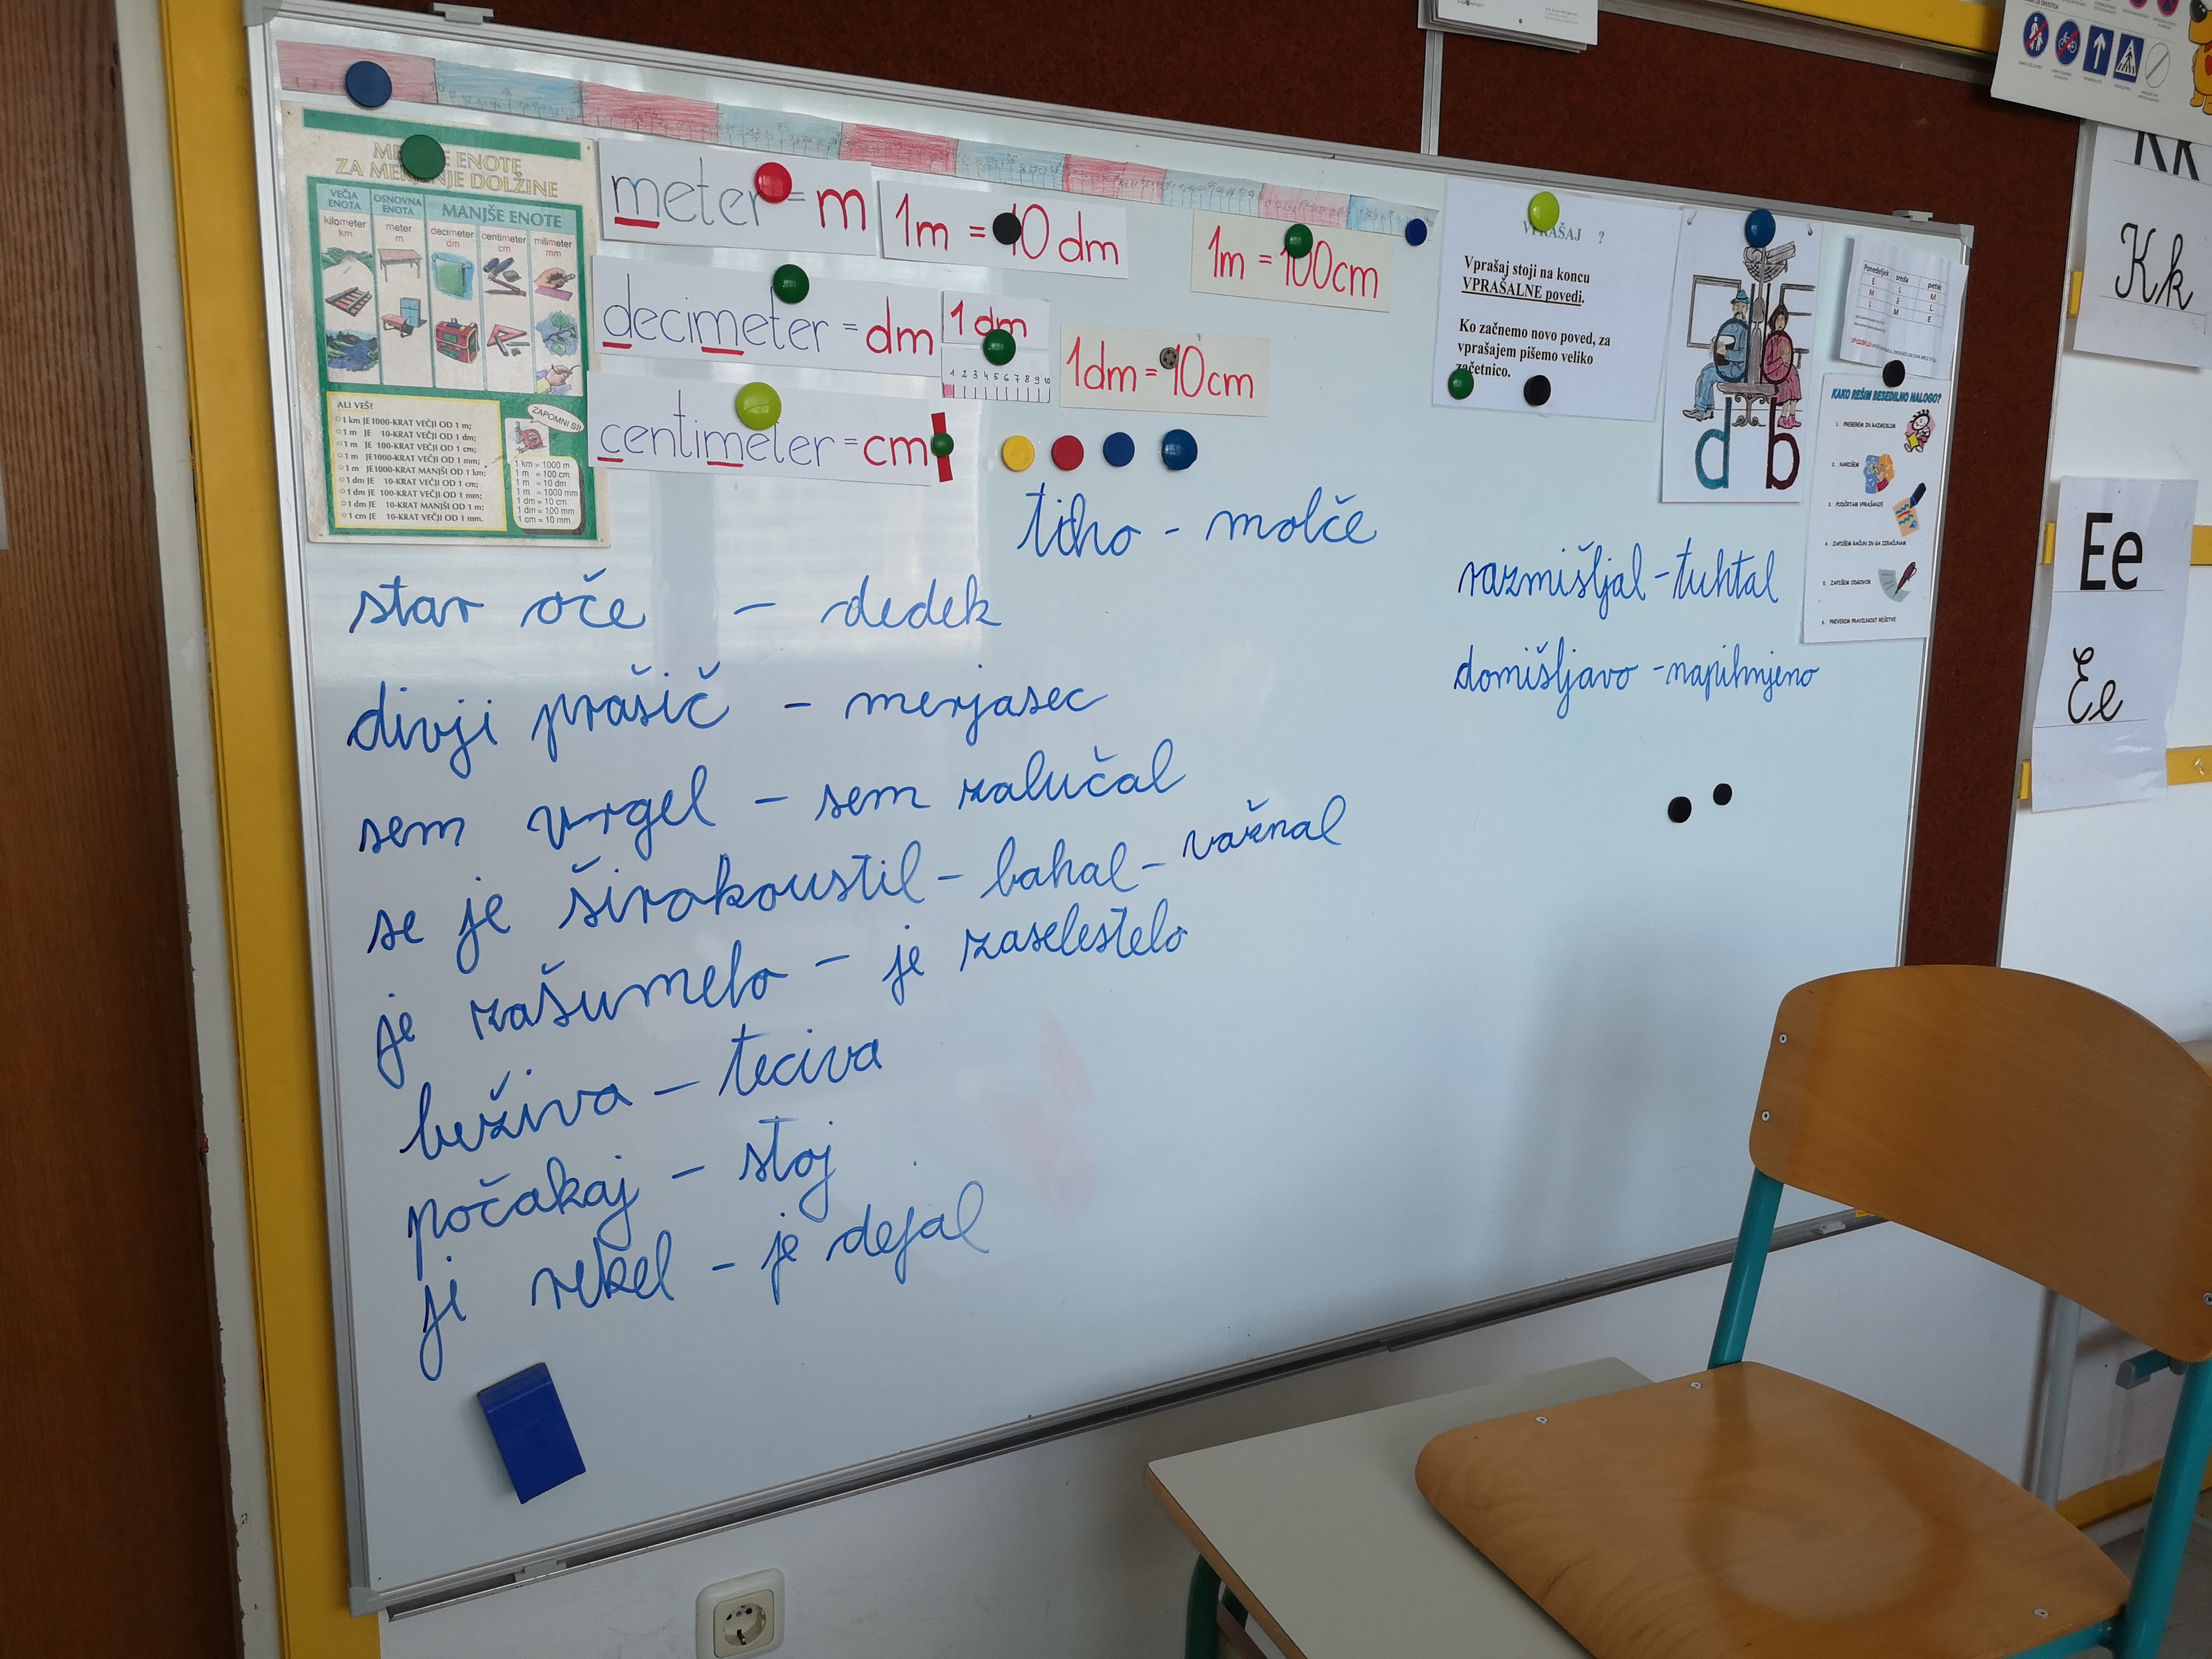 ENOTE
ZA MERJENJE DOLŽINE
VEČJA ENOTA
OSNOVNA ENOTA
MANJŠE ENOTE
kilometer km
meter m
decimeter dm
centimeter cm
milimeter mm
ALI VEŠ?
1 km JE 1000-KRAT VEČJI OD 1 m;
1 m JE 10-KRAT VEČJI OD 1 dm;
1 m JE 100-KRAT VEČJI OD 1 cm;
1 m JE 1000-KRAT VEČJI OD 1 mm;
1 m JE 1000-KRAT MANJŠI OD 1 km;
1 dm JE 10-KRAT VEČJI OD 1 cm;
1 dm JE 100-KRAT VEČJI OD 1 mm;
1 dm JE 10-KRAT MANJŠI OD 1 m;
1 cm JE 10-KRAT VEČJI OD 1 mm.
ZAPOMNI SI!
1 km = 1000 m
1 m = 100 cm
1 m = 10 dm
1 m = 1000 mm
1 dm = 10 cm
1 dm = 100 mm
1 cm = 10 mm
meter = m
1m = 10 dm
1m = 100cm
decimeter = dm
1 dm
1 2 3 4 5 6 7 8 9 10
1dm = 10cm
centimeter = cm
VPRAŠAJ ?
Vprašaj stoji na koncu
VPRAŠALNE povedi.
Ko začnemo novo poved, za
vprašajem pišemo veliko
začetnico.
d b
Ponedeljek sreda petek
E L M
M E L
L M E
KAKO REŠIM BESEDILNO NALOGO?
1. PREBEREM IN RAZMISLIM
2. NARIŠEM
3. PODČRTAM VPRAŠANJE
4. ZAPIŠEM RAČUN IN GA IZRAČUNAM
5. ZAPIŠEM ODGOVOR
6. PREVERIM PRAVILNOST REŠITVE
tiho - molče
star oče - dedek
divji prašič - merjasec
sem vrgel - sem zalučal
se je širokoustil - bahal - važnal
je zašumelo - je zaselestelo
beživa - teciva
počakaj - stoj
ji rekel - je dejal
razmišljal - tuhtal
domišljavo - napihnjeno
Kk
Kk
Ee
Ee